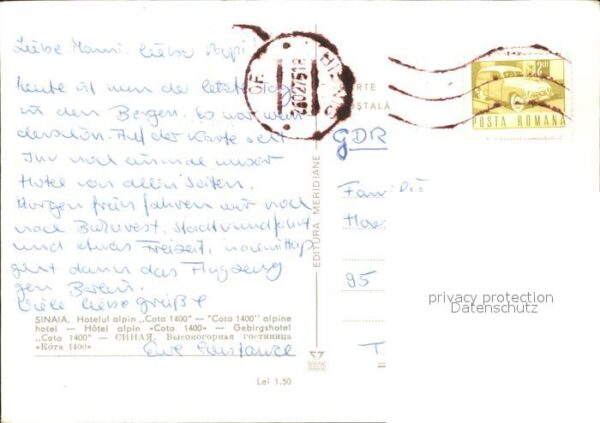 Liebe Mammi, lieber Pappi!
Heute ist nun der letzte Tag
in den Bergen. Es war wun
derschön. Auf der Karte seht
Ihr noch einmal unser
Hotel von allen Seiten.
Morgen früh fahren wir noch
nach Bukarest, Stadtrundfahrt
und etwas Freizeit, nachmittag
geht dann das Flugzeug
gen Berlin.
Viele liebe Grüße
Eure Constanze
SINAIA. Hotelul alpin „Cota 1400" — "Cota 1400" alpine
hotel — Hôtel alpin «Cota 1400» — Gebirgshotel
„Cota 1400" — СИНАЯ. Высокогорная гостиница
«Кота 1400»
Lei 1,50
EDITURA MERIDIANE
SINAIA
280275 18
OF.
CARTE
POȘTALĂ
POSTA ROMANA
GDR
Famili
95
privacy protection
Datenschutz